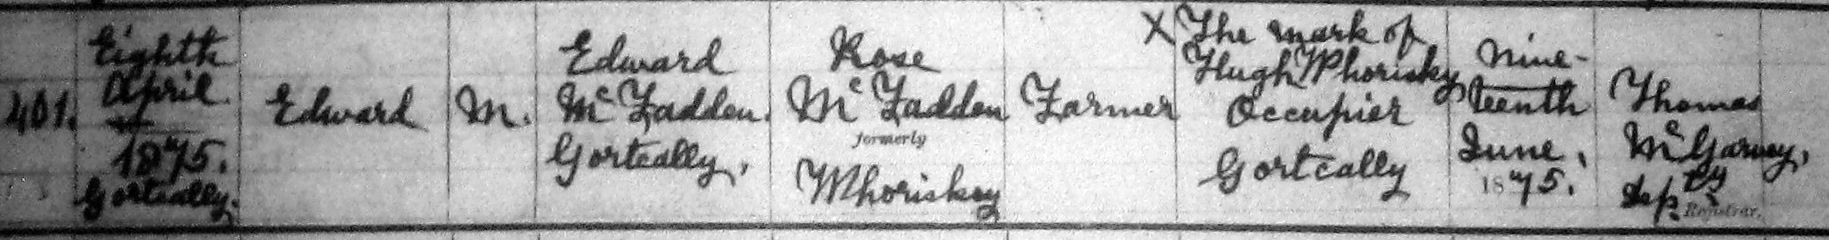 401.
Eighth
April
1875.
Gortcally.
Edward
M.
Edward
McFadden
Gortcally,
Rose
McFadden
formerly
Mhoriskey
Farmer
X The mark of
Hugh Mhorisky
Occupier
Gortcally
Nine-
teenth
June,
1875.
Thomas
McGarvey,
Depty
Registrar.